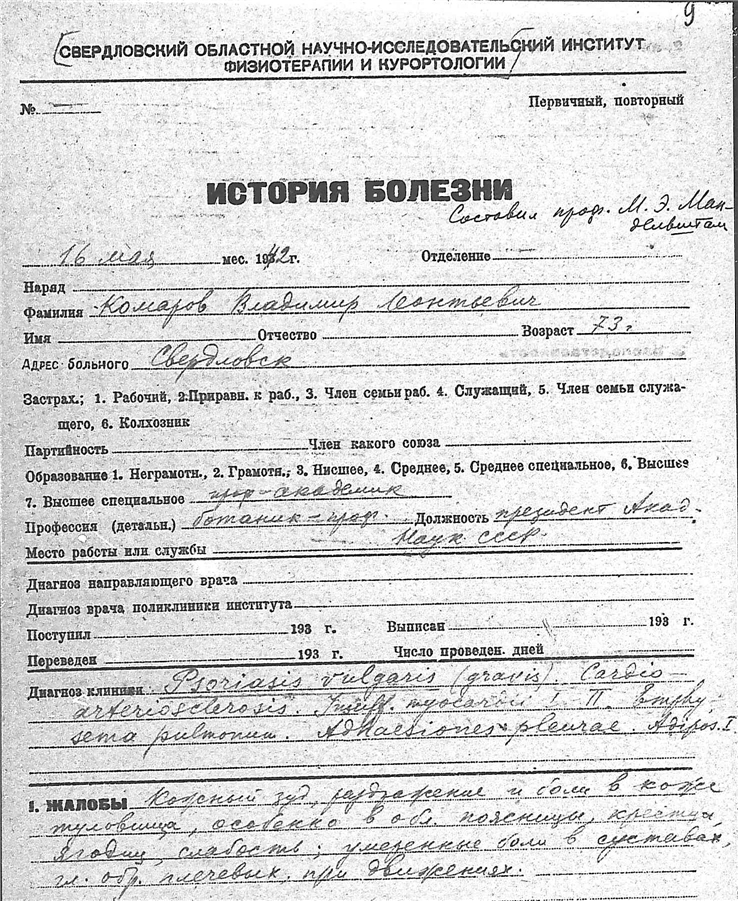 9
СВЕРДЛОВСКИЙ ОБЛАСТНОЙ НАУЧНО-ИССЛЕДОВАТЕЛЬСКИЙ ИНСТИТУТ
ФИЗИОТЕРАПИИ И КУРОРТОЛОГИИ
№
Первичный, повторный
ИСТОРИЯ БОЛЕЗНИ
Составил проф. М. Э. Ман-
дельштам
16 мая мес. 1942 г. Отделение
Наряд
Фамилия Комаров Владимир Леонтьевич
Имя Отчество Возраст 73 г.
Адрес больного Свердловск
Застрах.; 1. Рабочий, 2.Приравн. к раб., 3. Член семьи раб. 4. Служащий, 5. Член семьи служа-
щего, 6. Колхозник
Партийность Член какого союза
Образование 1. Неграмотн., 2. Грамотн.; 3. Нисшее, 4. Среднее, 5. Среднее специальное, 6. Высшее
7. Высшее специальное проф-академик
Профессия (детальн.) ботаник-проф. Должность президент Акад.
Место работы или службы Наук СССР.
Диагноз направляющего врача
Диагноз врача поликлиники института
Поступил 193 г. Выписан 193 г.
Переведен 193 г. Число проведен. дней
Диагноз клиники Psoriasis vulgaris (gravis). Cardio-
arteriosclerosis. Insuff. myocardii I II. Emphy-
sema pulmonum. Adhaesiones pleurae. Adipos. I
I. ЖАЛОБЫ Кожный зуд, раздражение и боли в коже
туловища, особенно в обл. поясницы, крестца,
ягодиц, слабость; умеренные боли в суставах,
гл. обр. плечевых при движениях.